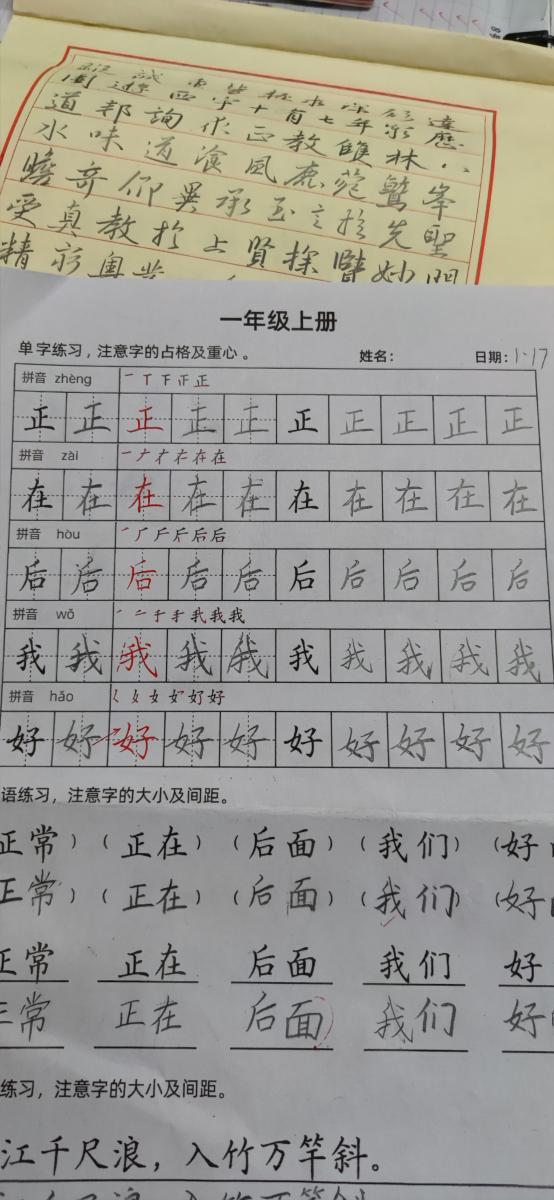 道邦詢求正教雖林
水味道飡風鹿菀鷲峯
瞻奇仰異承至言於先聖
受真教於上賢探賾妙門
精窮奧業
一年级上册
单字练习，注意字的占格及重心。 姓名： 日期：1·17
拼音 zhèng 一 丅 下 正 正
正 正 正 正 正 正 正 正 正 正
拼音 zài
在 在 在 在 在 在 在 在 在 在
拼音 hòu
后 后 后 后 后 后 后 后 后 后
拼音 wǒ
我 我 我 我 我 我 我 我 我 我
拼音 hǎo
好 好 好 好 好 好 好 好 好 好
语练习，注意字的大小及间距。
正常）（正在）（后面）（我们）（好
正常）（正在）（后面）（我们）（好
正常 正在 后面 我们 好
正常 正在 后面 我们 好
练习，注意字的大小及间距。
江千尺浪，入竹万竿斜。